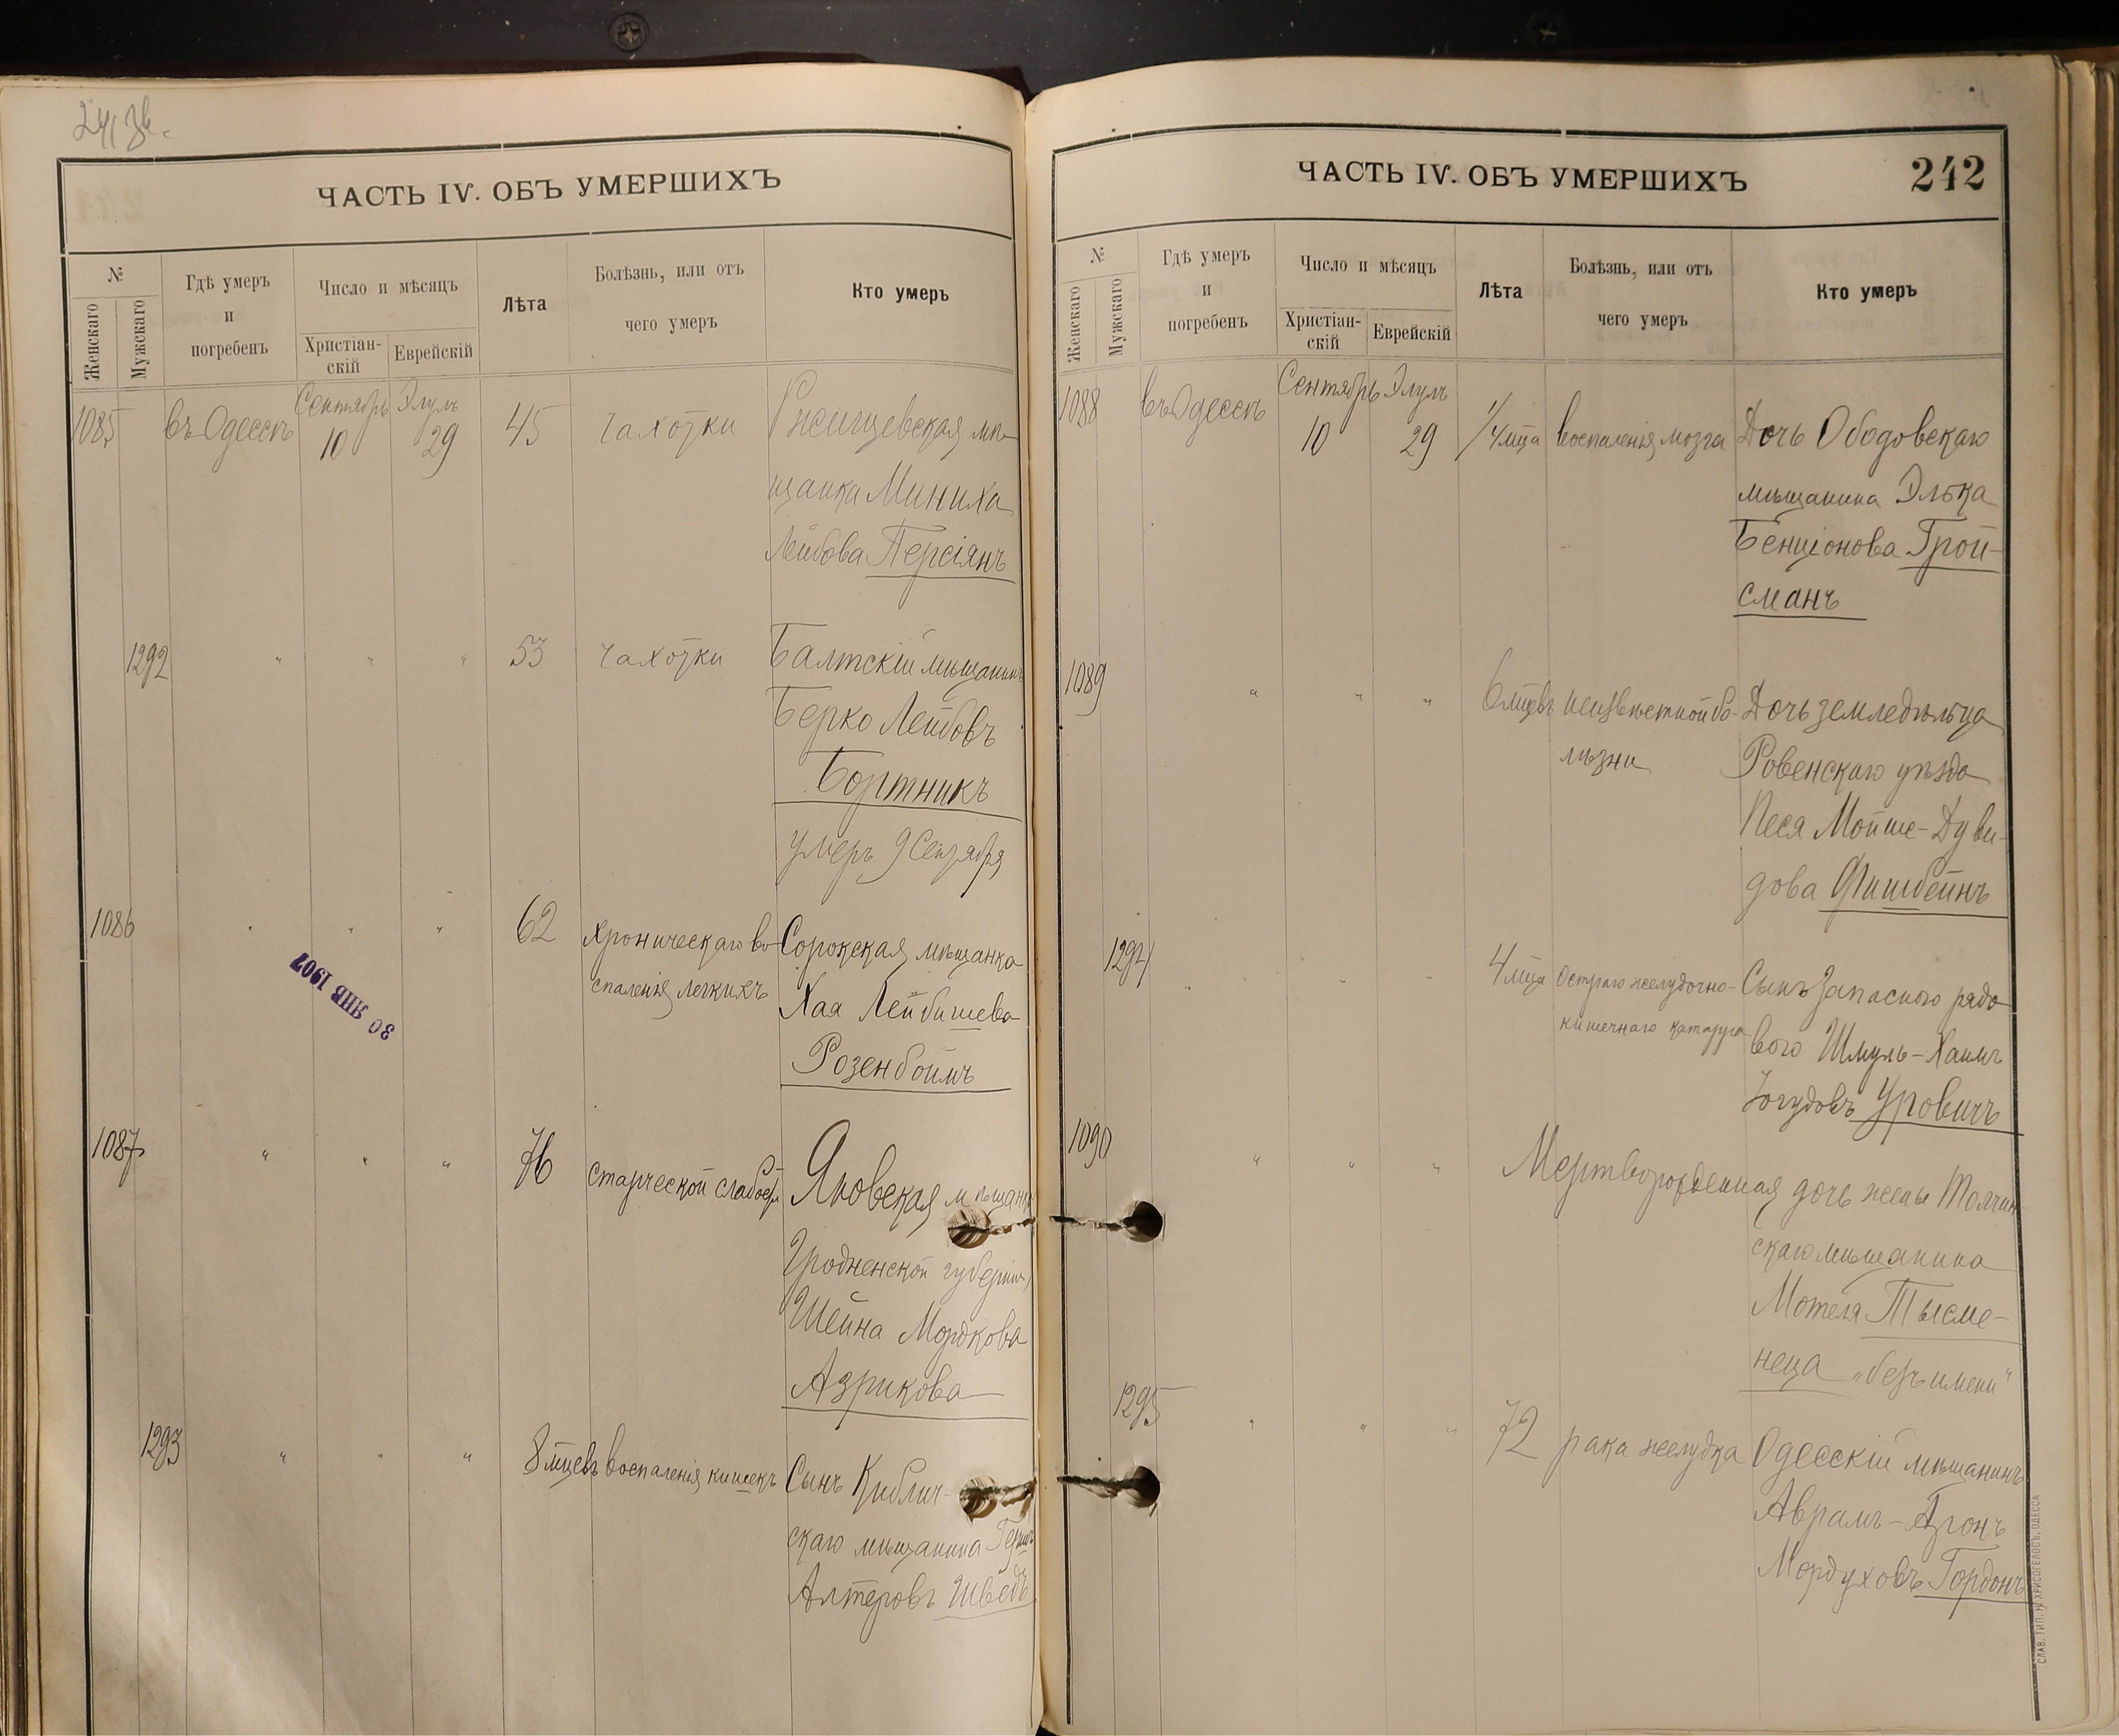 241 зв.
ЧАСТЬ IV. ОБЪ УМЕРШИХЪ
№
Женскаго
Мужскаго
Гдѣ умеръ
и
погребенъ
Число и мѣсяцъ
Христіан-
скій
Еврейскій
Лѣта
Болѣзнь, или отъ
чего умеръ
Кто умеръ
1085 въ Одессѣ Сентябрь 10 Элулъ 29 45 чахотки Ржищевская мѣ-
щанка Миниха
Лейбова Персіянъ
1292 " " " 53 чахотки Балтскій мѣщанинъ
Берко Лейбовъ
Бортникъ
умеръ 9 Сентября
1086 " " " 62 хроническаго во- Сорокская мѣщанка
спаленія легкихъ Хая Лейбишева
Розенбоймъ
30 ЯНВ 1907
1087 " " " 76 старческой слабости Яновская мѣщанка
Гродненской губерніи,
Шейна Мордкова
Азрикова
1293 " " " 8 мцевъ воспаленія кишекъ Сынъ Кублич-
скаго мѣщанина Гершъ
Алтеровъ Шведъ
ЧАСТЬ IV. ОБЪ УМЕРШИХЪ
242
№
Женскаго
Мужскаго
Гдѣ умеръ
и
погребенъ
Число и мѣсяцъ
Христіан-
скій
Еврейскій
Лѣта
Болѣзнь, или отъ
чего умеръ
Кто умеръ
1088 въ Одессѣ Сентябрь 10 Элулъ 29 1/4 мца воспаленія мозга Дочь Ободовскаго
мѣщанина Элька
Бенціонова Грой-
сманъ
1089 " " " 6 мцевъ неизвѣстной бо- Дочь земледѣльца
лѣзни Ровенскаго уѣзда
Песя Мойше-Дуви-
дова Фишбейнъ
1294 " " " 4 мца Остраго желудочно- Сынъ Запасного рядо
кишечнаго катарра вого Шмуль-Хаимъ
Іогудовъ Уровичъ
1090 " " " Мертворожденная дочь жены Толчин-
скаго мѣщанина
Мотеля Тысме-
неца „безъ имени"
1295 " " " 72 рака желудка Одесскій мѣщанинъ
Аврамъ-Аронъ
Мордуховъ Гордонъ
СЛАВ. ТИП. Н. ХРИСОГЕЛОСЪ, ОДЕССА